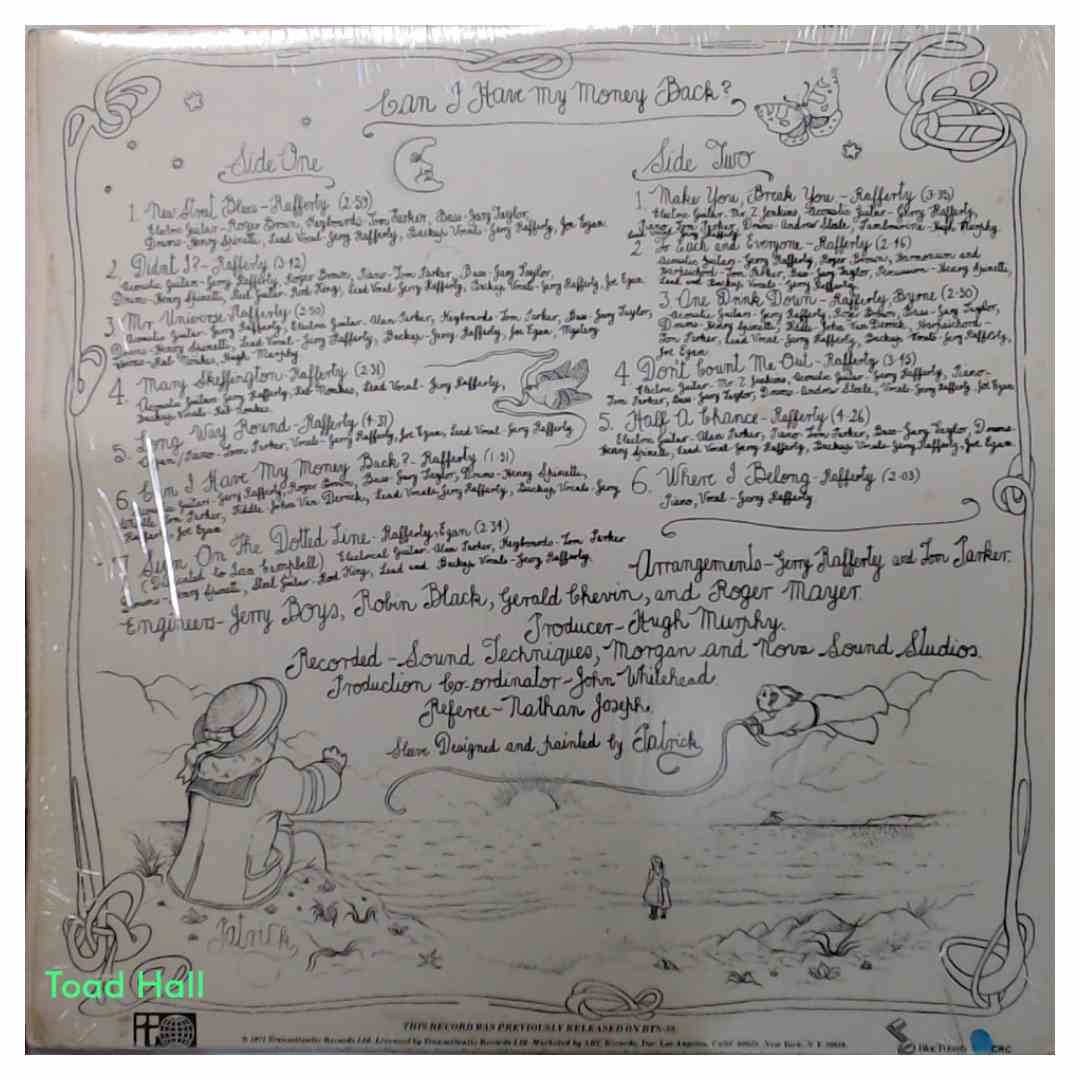 Can I Have My Money Back?
Side One
1. New Street Blues - Rafferty (2·59)
Electric Guitar - Roger Brown, Keyboards - Tom Parker, Bass - Gary Taylor,
Drums - Henry Spinetti, Lead Vocal - Gerry Rafferty, Backup Vocals - Gerry Rafferty, Joe Egan.
2. Didn't I? - Rafferty (3·12)
Acoustic Guitars - Gerry Rafferty, Roger Brown, Piano - Tom Parker, Bass - Gary Taylor,
Drums - Henry Spinetti, Steel Guitar - Rod King, Lead Vocal - Gerry Rafferty, Backup Vocals - Gerry Rafferty, Joe Egan
3. Mr. Universe - Rafferty (2·50)
Acoustic Guitar - Gerry Rafferty, Electric Guitar - Alan Parker, Keyboards - Tom Parker, Bass - Gary Taylor,
Drums - Henry Spinetti, Lead Vocal - Gerry Rafferty, Backup - Gerry Rafferty, Joe Egan, Mystery
Rab Noakes, Hugh Murphy
4. Mary Skeffington - Rafferty (2·31)
Acoustic Guitars - Gerry Rafferty, Rab Noakes, Lead Vocal - Gerry Rafferty,
Backup Vocals - Rab Noakes.
5. Long Way Round - Rafferty (4·31)
Organ/Piano - Tom Parker, Vocals - Gerry Rafferty, Joe Egan, Lead Vocal - Gerry Rafferty
6. Can I Have My Money Back? - Rafferty (1·31)
Acoustic Guitars - Gerry Rafferty, Roger Brown, Bass - Gary Taylor, Drums - Henry Spinetti,
Tom Parker, Fiddle - John Van Derrick, Lead Vocals - Gerry Rafferty, Backup Vocals - Gerry
Rafferty, Joe Egan
7. Sign On The Dotted Line - Rafferty, Egan (2·34)
(Dedicated to Ian Campbell) Electrical Guitar - Alan Parker, Keyboards - Tom Parker
Drums - Henry Spinetti, Steel Guitar - Rod King, Lead and Backup Vocals - Gerry Rafferty.
Side Two
1. Make You, Break You - Rafferty (3·35)
Electric Guitar - Mr Z Jenkins, Acoustic Guitar - Gerry Rafferty,
Piano - Tom Parker, Drums - Andrew Steele, Tambourine - Hugh Murphy
2. To Each and Everyone - Rafferty (2·46)
Acoustic Guitars - Gerry Rafferty, Roger Brown, Harmonium and
Harpsichord - Tom Parker, Bass - Gary Taylor, Percussion - Henry Spinetti,
Lead and Backup Vocals - Gerry Rafferty
3. One Drink Down - Rafferty Byrne (2·30)
Acoustic Guitars - Gerry Rafferty, Roger Brown, Bass - Gary Taylor,
Drums - Henry Spinetti, Fiddle - John Van Derrick, Harpsichord -
Tom Parker, Lead Vocal - Gerry Rafferty, Backup Vocals - Gerry Rafferty,
Joe Egan
4. Don't Count Me Out - Rafferty (3·45)
Electric Guitar - Mr Z Jenkins, Acoustic Guitar - Gerry Rafferty, Piano -
Tom Parker, Bass - Gary Taylor, Drums - Andrew Steele, Vocals - Gerry Rafferty, Joe Egan
5. Half A Chance - Rafferty (4·26)
Electric Guitar - Alan Parker, Piano - Tom Parker, Bass - Gary Taylor, Drums -
Henry Spinetti, Lead Vocal - Gerry Rafferty, Backup Vocals - Gerry Rafferty, Joe Egan.
6. Where I Belong - Rafferty (2·03)
Piano, Vocal - Gerry Rafferty
Arrangements - Gerry Rafferty and Tom Parker.
Engineers - Jerry Boys, Robin Black, Gerald Chevin, and Roger Mayer.
Producer - Hugh Murphy.
Recorded - Sound Techniques, Morgan and Nova Sound Studios.
Production Co-ordinator - John Whitehead.
Referee - Nathan Joseph.
Sleeve Designed and painted by Patrick
Patrick
Toad Hall
THIS RECORD WAS PREVIOUSLY RELEASED ON BTS-58
℗ 1971 Transatlantic Records Ltd. Licensed by Transatlantic Records Ltd. Marketed by ABC Records, Inc. Los Angeles, Calif. New York, N.Y.
Blue Thumb
CRC